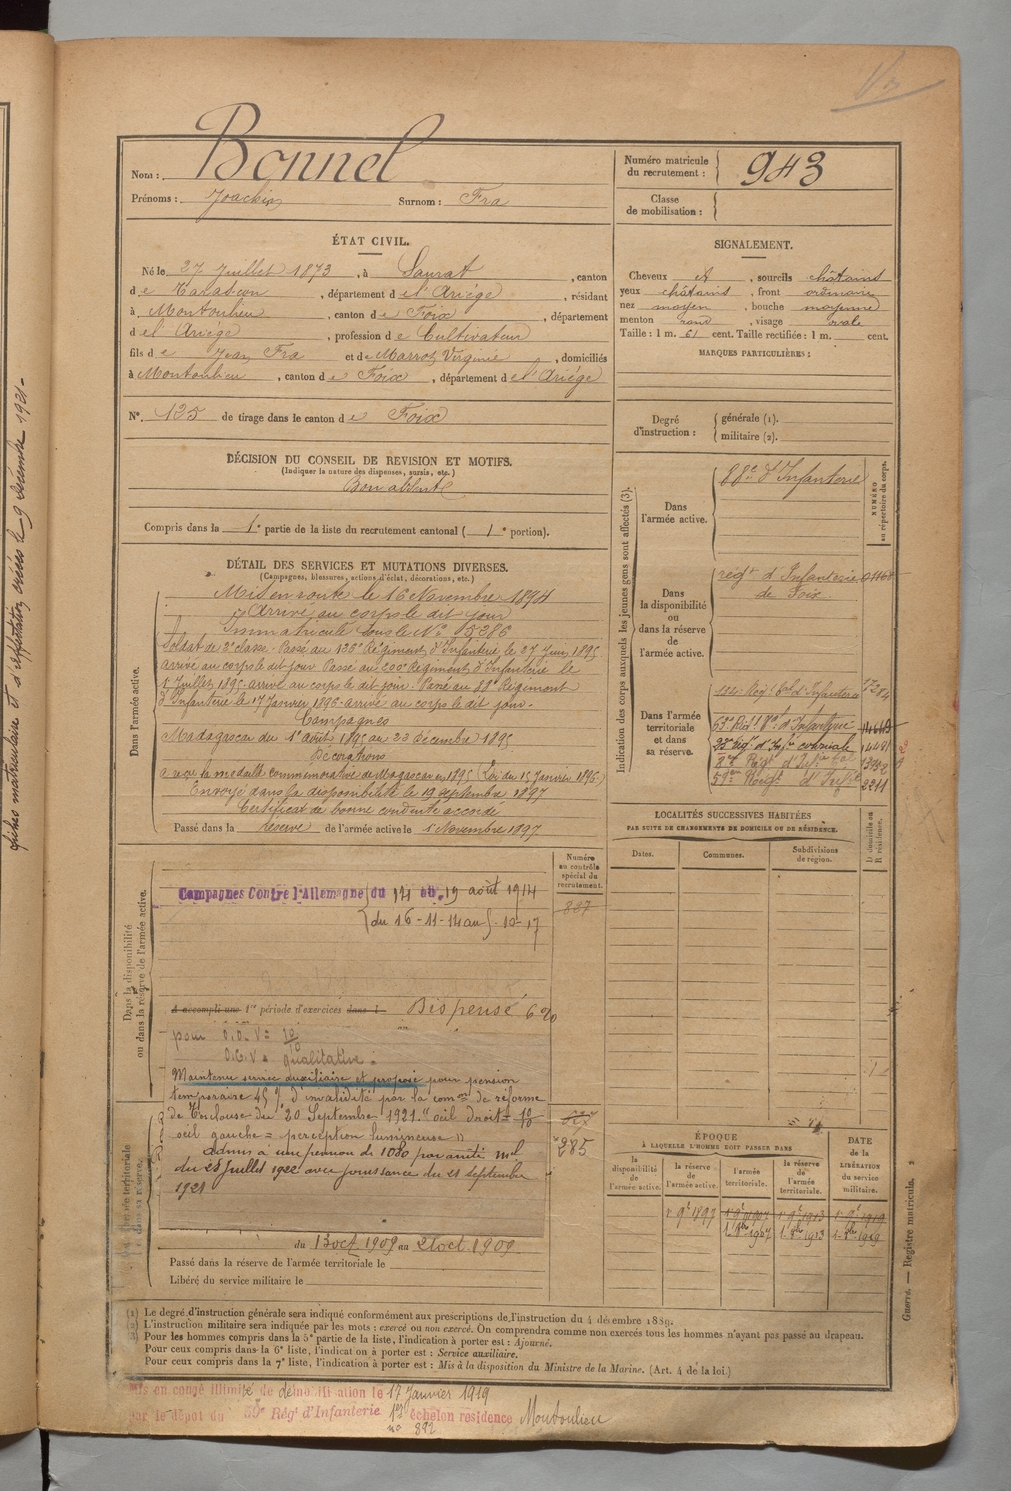 Nom : Bonnel
Prénoms : Joachin Surnom : Fra
Numéro matricule du recrutement : 943
Classe de mobilisation :
ÉTAT CIVIL.
Né le 27 Juillet 1873, à Saurat, canton
de Tarascon, département de l'Ariège, résidant
à Montoulieu, canton de Foix, département
de l'Ariège, profession de Cultivateur
fils de Jean Fra et de Marrot Virginie, domiciliés
à Montoulieu, canton de Foix, département de l'Ariège
N° 125 de tirage dans le canton de Foix
SIGNALEMENT.
Cheveux et, sourcils châtains
yeux châtains, front ordinaire
nez moyen, bouche moyenne
menton rond, visage ovale
Taille : 1 m. 61 cent. Taille rectifiée : 1 m. cent.
MARQUES PARTICULIÈRES :
Degré d'instruction : générale (1).
militaire (2).
DÉCISION DU CONSEIL DE REVISION ET MOTIFS.
(Indiquer la nature des dispenses, sursis, etc.)
Bon absent
Compris dans la 1e partie de la liste du recrutement cantonal (1e portion).
DÉTAIL DES SERVICES ET MUTATIONS DIVERSES.
(Campagnes, blessures, actions d'éclat, décorations, etc.)
Dans l'armée active.
Mis en route le 16 Novembre 1894
Arrivé au corps le dit jour
Immatriculé sous le N° 15286
Soldat de 2e classe. Passé au 136e Régiment d'Infanterie le 27 Juin 1895
arrivé au corps le dit jour. Passé au 200e Régiment d'Infanterie le
1 Juillet 1895 arrivé au corps le dit jour. Passé au 88e Régiment
d'Infanterie le 17 Janvier 1896 arrivé au corps le dit jour.
Campagnes
Madagascar du 1er août 1895 au 23 décembre 1895
Décorations
a reçu la médaille commémorative de Magascar 1895 (Loi du 15 Janvier 1896)
Envoyé dans la disponibilité le 19 septembre 1897
Certificat de bonne conduite accordé
Passé dans la réserve de l'armée active le 1 Novembre 1897
Indication des corps auxquels les jeunes gens sont affectés (3).
NUMÉRO au répertoire du corps.
Dans l'armée active. 88e d'Infanterie
Dans la disponibilité ou dans la réserve de l'armée active.
régt d'Infanterie de Foix
Dans l'armée territoriale et dans sa réserve.
53e Régt d'Infanterie
59e Régt d'Infie 2211
LOCALITÉS SUCCESSIVES HABITÉES
PAR SUITE DE CHANGEMENTS DE DOMICILE OU DE RÉSIDENCE.
Dates. Communes. Subdivisions de région.
D domicile ou R résidence.
Dans la disponibilité ou dans la réserve de l'armée active.
Numéro au contrôle spécial du recrutement.
887
Campagnes Contre l'Allemagne du 14 au 19 août 1914
du 16-11-14 au
A accompli une 1re période d'exercices dans l Dispensé
pour O.D. V = 10/10
O.G. V = qualitative :
Maintenu service auxiliaire et proposé pour pension
temporaire 45 % d'invalidité par la comon de réforme
de Toulouse du 20 Septembre 1921. " œil droit = 10/10
œil gauche = perception lumineuse "
admis à une pension de 1080
du 28 Juillet 1922 avec jouissance du 21 septembre
1921
285
du 13 oct 1909 au 21 oct 1909
Passé dans la réserve de l'armée territoriale le
Libéré du service militaire le
ÉPOQUE
À LAQUELLE L'HOMME DOIT PASSER DANS
la disponibilité de l'armée active. la réserve de l'armée active. l'armée territoriale. la réserve de l'armée territoriale.
DATE de la LIBÉRATION du service militaire.
1r 9e 1897 1r 9e 1907 1r 9e 1913 1r 9e 1919
(1) Le degré d'instruction générale sera indiqué conformément aux prescriptions de l'instruction du 4 décembre 1889.
(2) L'instruction militaire sera indiquée par les mots : exercé ou non exercé. On comprendra comme non exercés tous les hommes n'ayant pas passé au drapeau.
(3) Pour les hommes compris dans la 5e partie de la liste, l'indication à porter est : Ajourné.
Pour ceux compris dans la 6e liste, l'indication à porter est : Service auxiliaire.
Pour ceux compris dans la 7e liste, l'indication à porter est : Mis à la disposition du Ministre de la Marine. (Art. 4 de la loi.)
Mis en congé illimité de démobilisation le 17 Janvier 1919
par le dépôt du 59e Régt d'Infanterie 1er échelon résidence Montoulieu
no 892
Guerre. — Registre matricule.
fiches matriculaire et d'affectation créées le 9 décembre 1921-